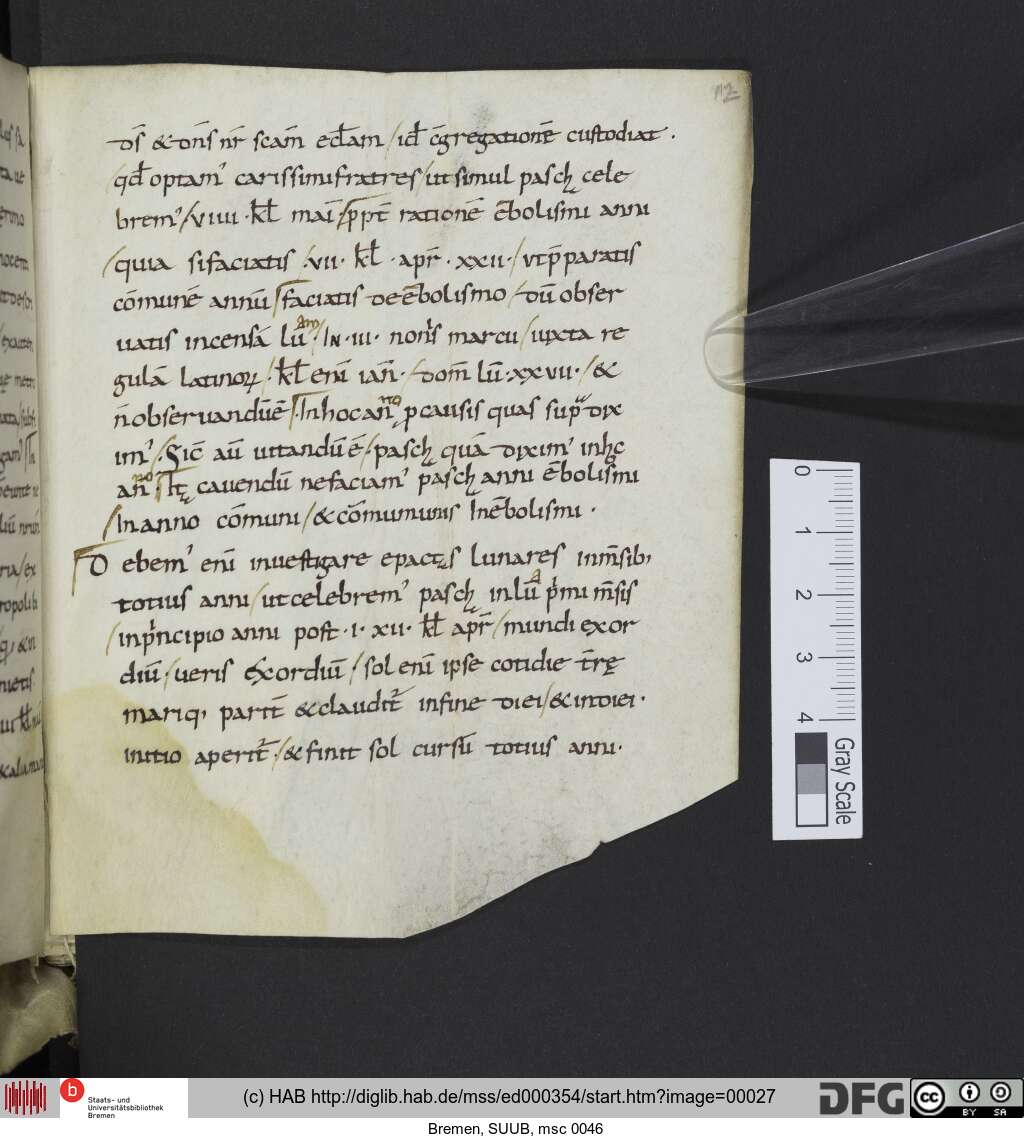 112
d̅s̅ & dn̅s nr̅ scam̅ eccl̅am / id̅ cg̅regatione̅ custodiat .
/ qd̅ optam' carissimi fratres / ut simul pasch̨ cele
brem' / VIIII · kl̅ mai̅ / pp̅t̅ ratione̅ e̅bolismi anni
/ quia si faciatis / · VII · kl̅ · apr̅ · XXII · / ut p̅paratis
co̅mune̅ annu̅ / faciatis de e̅bolismo / du̅ obser
uatis incensa̅ lu̅ / · IN · III · nonis marcii / iuxta re
gula̅ latinoꝝ / · kl̅ eni̅ ian̅ · / dom̅ lu̅ · XXVII · / &
n̅ obseruandu̅ e̅ / · In hoc an̅no p̱ causis quas supra dix
im' / · Sic̅ au̅ uitandu̅ e̅ / · pasch̨ qua̅ dixim' in hc̨
an̅no / · It̨ cauendu̅ ne faciam' pasch̨ anni e̅bolismi
/ In anno co̅muni / & co̅munis In e̅bolismi ·
Debem' eni̅ inuestigare epact̨s lunares in m̅sib;
totius anni / ut celebrem' pasch̨ in lu̅a p'mi m̅sis
/ in p'ncipio anni post · I · XII · kl̅ apr̅ / mundi exor
diu̅ / ueris exordiu̅ / sol eni̅ ipse cotidie t̅rę
mariq; partit̅ & claudit̅ in fine diei / & in diei ·
initio aperit̅ · / & finit sol cursu̅ totius anni ·
0
1
2
3
4
Gray Scale
b Staats- und
Universitätsbibliothek
Bremen
(c) HAB http://diglib.hab.de/mss/ed000354/start.htm?image=00027
DFG
cc BY SA
Bremen, SUUB, msc 0046